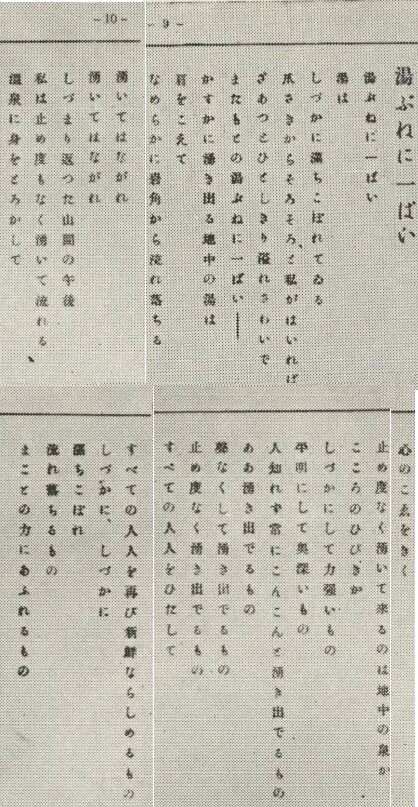 - 9 -
湯ぶねに一ぱい
湯ぶねに一ぱい
湯は
しづかに満ちこぼれてゐる
爪さきからそろそろ、と私がはいれば
ざあつとひとしきり溢れさわいで
またもとの湯ぶねに一ぱい――
かすかに湧き出る地中の湯は
肩をこえて
なめらかに岩角から流れ落ちる
- 10 -
湧いてはながれ
湧いてはながれ
しづまり返つた山間の午後
私は止め度もなく湧いて流れる
温泉に身をとろかして、
心のこゑをきく
止め度なく湧いて来るのは地中の泉か
こころのひびきか
しづかにして力強いもの
平明にして奥深いもの
人知れず常にこんこんと湧き出でるもの
ああ湧き出でるもの
聲なくして湧き出でるもの
止め度なく湧き出でるもの
すべての人人をひたして
すべての人人を再び新鮮ならしめるもの
しづかに、しづかに
満ちこぼれ
流れ落ちるもの
まことの力にあふれるもの